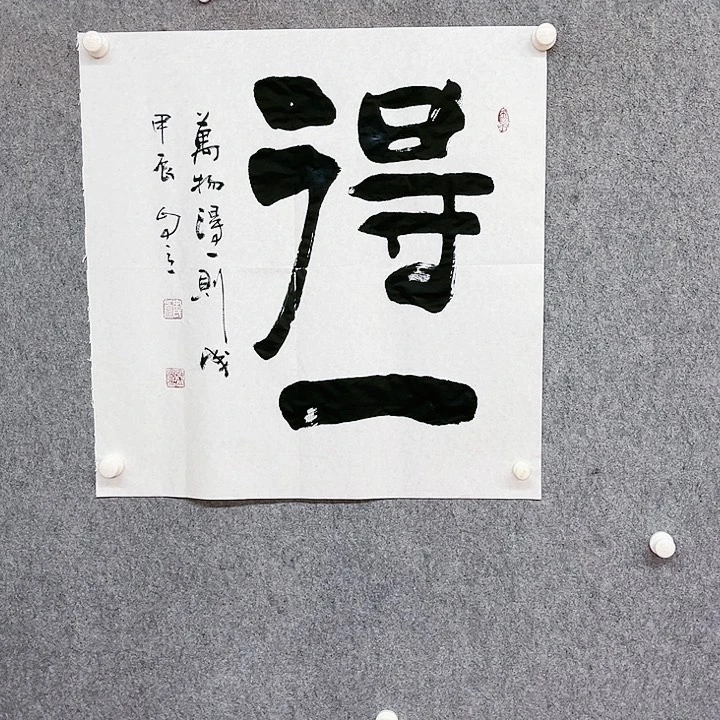 得一
萬物得一則成
甲辰